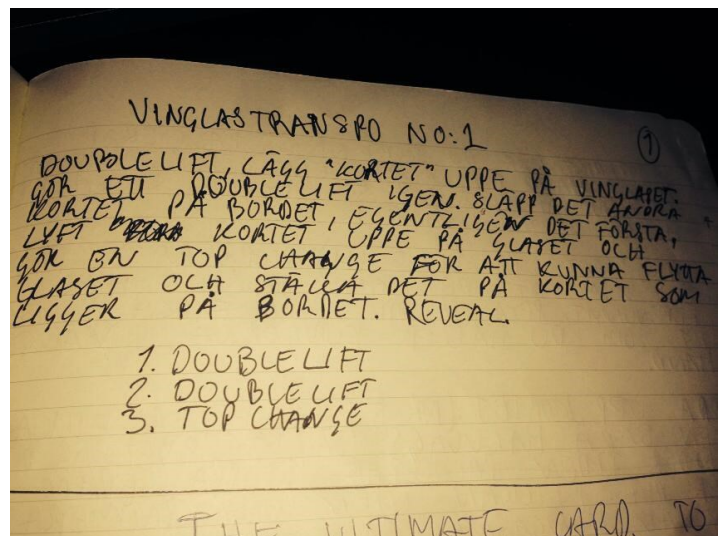 VINGLASTRANSPO NO:1
1
DOUBLELIFT, LÄGG "KORTET" UPPE PÅ VINGLASET.
GÖR ETT DOUBLELIFT IGEN. SLÄPP DET ANDRA
KORTET PÅ BORDET, EGENTLIGEN DET FÖRSTA,
LYFT KORTET UPPE PÅ GLASET OCH
GÖR EN TOP CHANGE FÖR ATT KUNNA FLYTTA
GLASET OCH STÄLLA DET PÅ KORTET SOM
LIGGER PÅ BORDET. REVEAL.
1. DOUBLELIFT
2. DOUBLELIFT
3. TOP CHANGE
THE ULTIMATE CARD TO